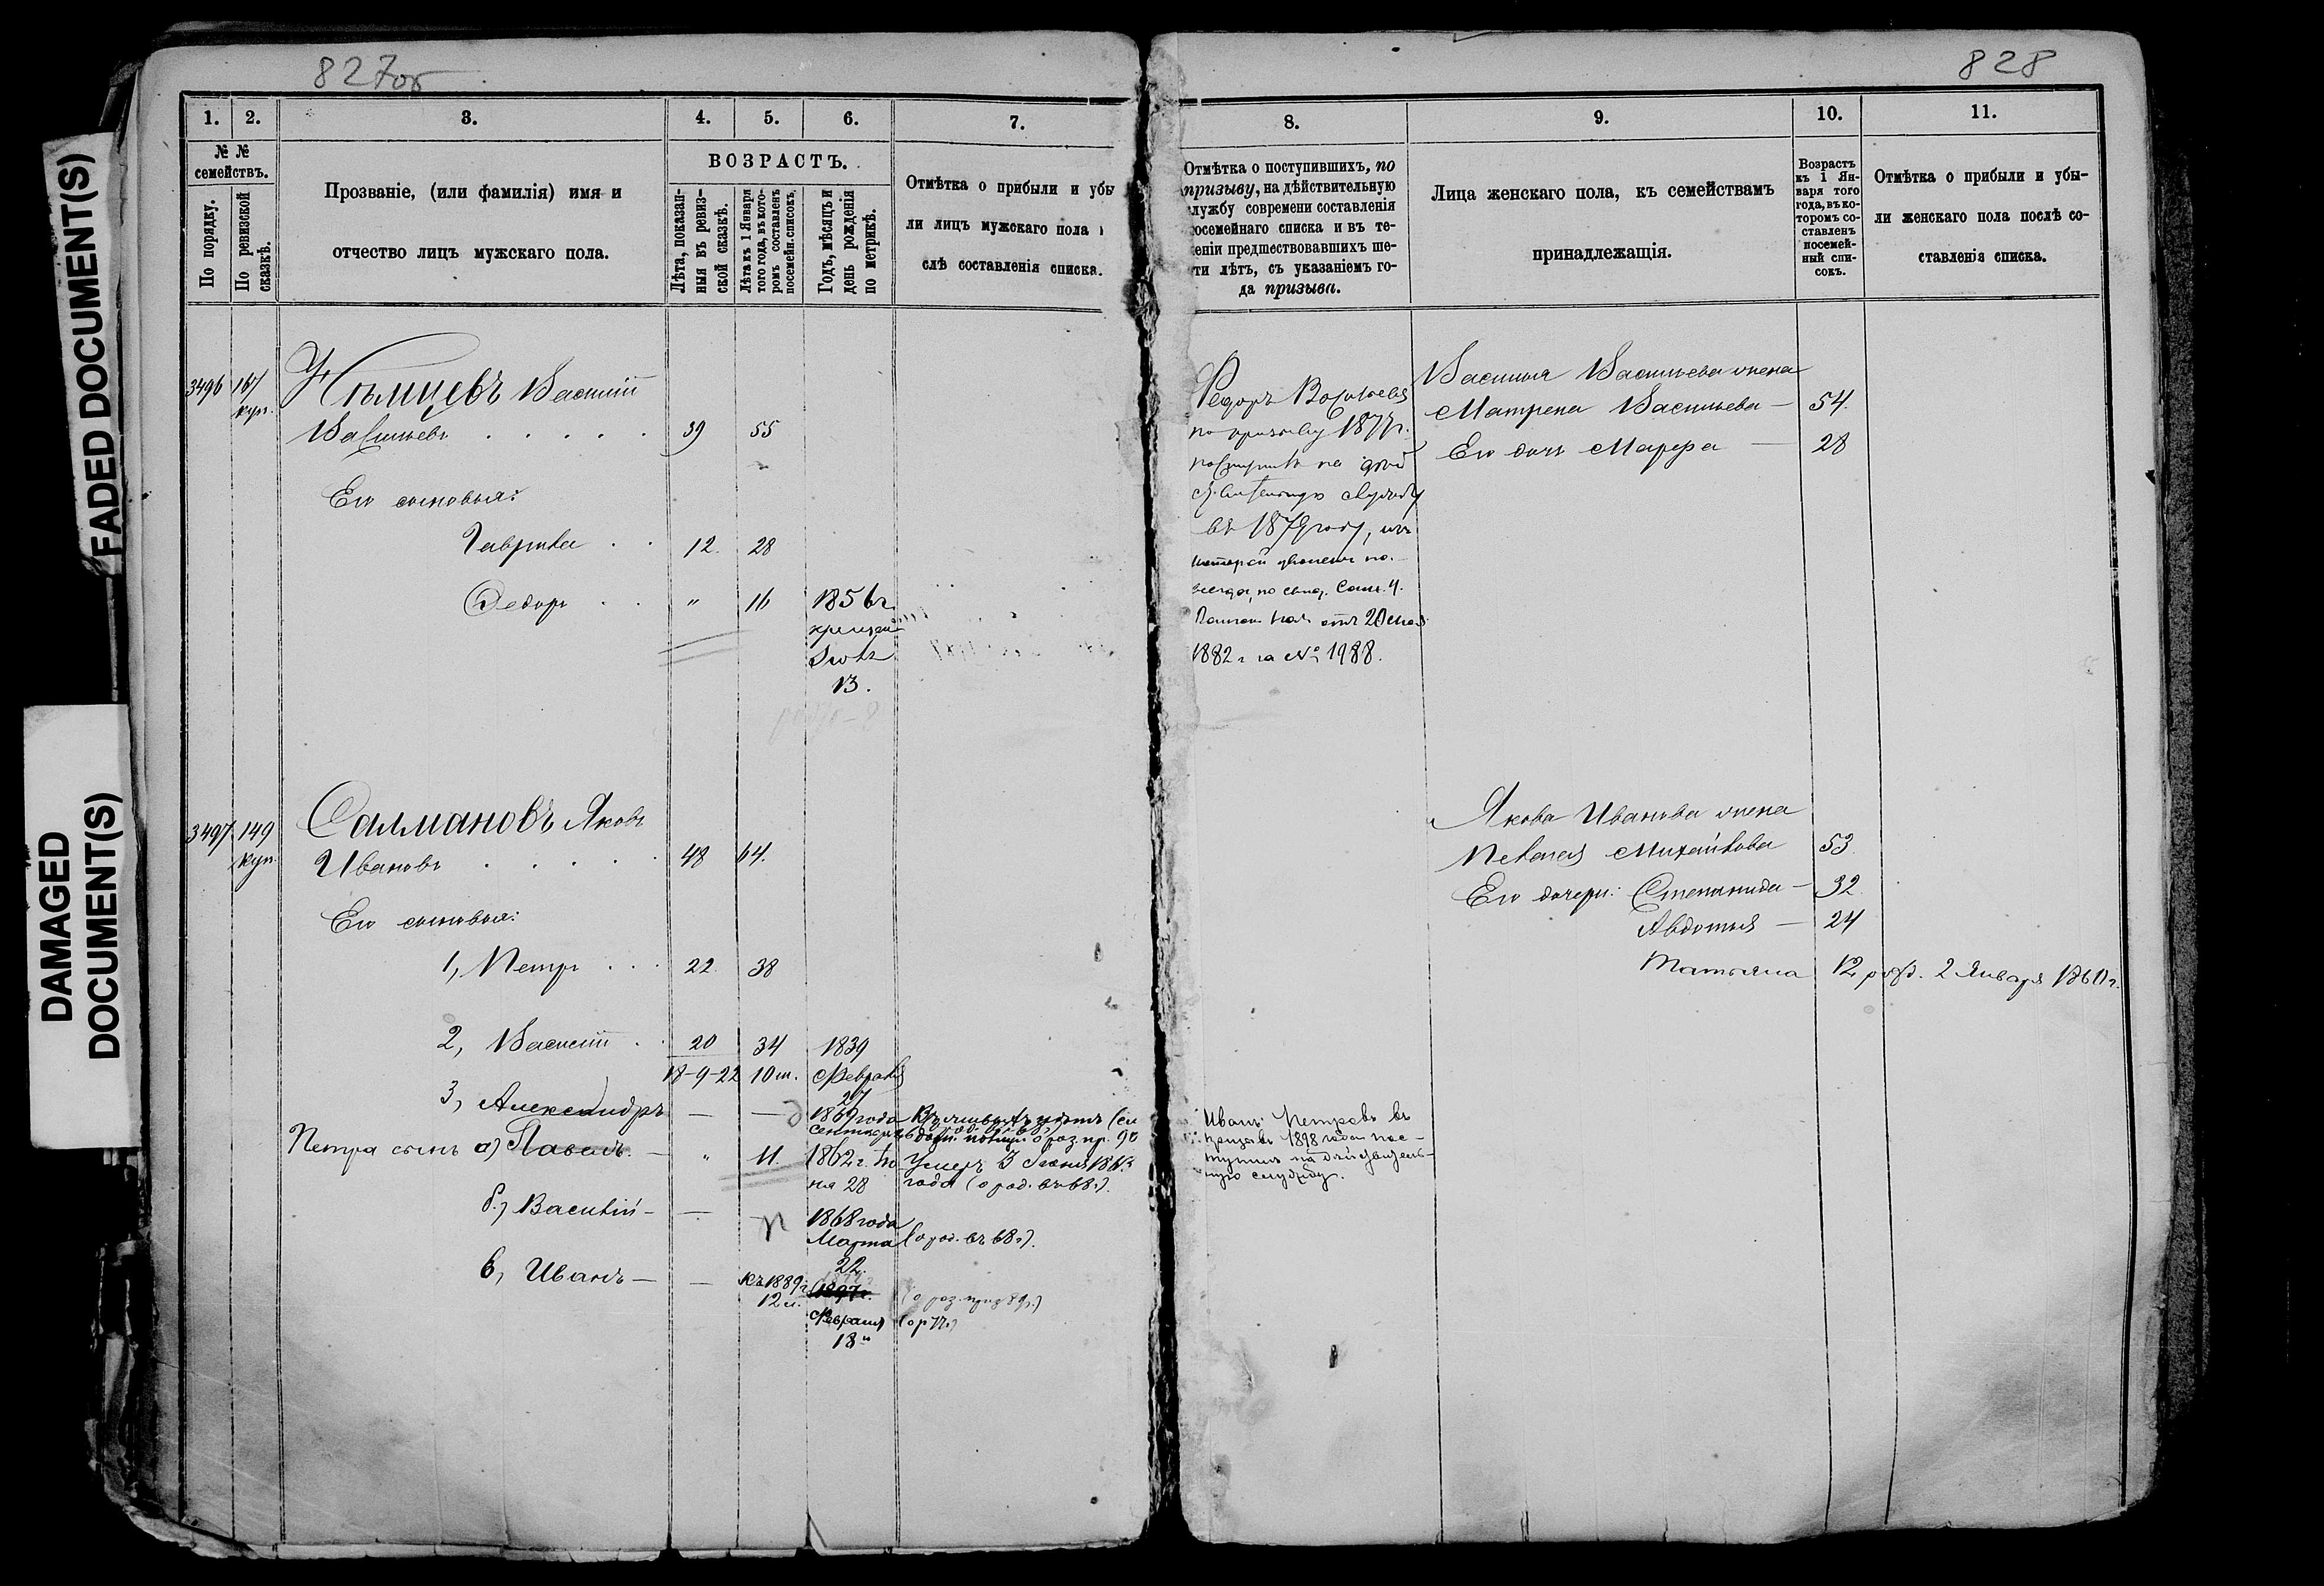 FADED DOCUMENT(S)
DAMAGED
DOCUMENT(S)
827об
1.
2.
3.
4.
5.
6.
7.
№ №
семействъ.
По порядку.
По ревизской
сказкѣ.
Прозваніе, (или фамилія) имя и
отчество лицъ мужскаго пола.
ВОЗРАСТЪ.
Лѣта, показан-
ныя въ ревиз-
ской сказкѣ.
Лѣта къ 1 Января
того года, въ кото-
ромъ составленъ
посемейн. списокъ.
Годъ, мѣсяцъ и
день рожденія
по метрикѣ.
Отмѣтка о прибыли и убы
ли лицъ мужскаго пола
слѣ составленія списка.
3496
167
куп.
Василій
Васильевъ
39
55
Его сыновья:
Гаврила
12.
28
Ѳедоръ
"
16
1856 г.
13.
3497.
149
куп.
Салмановъ Яковъ
Ивановъ
48
64.
Его сыновья:
1, Петръ
22.
38
2, Василій
20
34
1839
18-9-22
10 м.
Февраля
27
3, Александръ
—
—
1869 года
Сентября
Петра сынъ а) Павелъ. —
"
11.
1862 г. Iю
ня 28
Умеръ 3 Iюня
года (о род. въ 68 г).
б.) Василій —
—
1868 года
Марта
22.
(о род. въ 68 г).
в, Иванъ —
—
къ 1889 г.
12 л.
1897 г.
Февраля
18
828
8.
9.
10.
11.
Отмѣтка о поступившихъ, по
призыву, на дѣйствительную
лужбу современи составленія
осемейнаго списка и въ те-
еніи предшествовавшихъ ше-
ти лѣтъ, съ указаніемъ го-
да призыва.
Лица женскаго пола, къ семействамъ
принадлежащія.
Возрастъ
къ 1 Ян-
варя того
года, въ ко-
торомъ со-
ставленъ
посемей-
ный спи-
сокъ.
Отмѣтка о прибыли и убы-
ли женскаго пола послѣ со-
ставленія списка.
Федоръ Васильевъ
по призыву 1877 г.
на дѣй
службу
въ 1879 году, изъ
которой уволенъ на-
всегда, по свид.
1882 г за № 1988.
Василья Васильева жена
Матрена Васильева —
54.
Его дочь Марфа —
28
Якова Иванова жена
Пелагея Михайлова
53.
Его дочери: Степанида —
32.
Авдотья —
24
Татьяна
12
рожд. 2 Января 1860 г.
Иванъ Петровъ въ
призывъ 1898 года пос-
тупилъ на дѣйствитель-
ную службу.